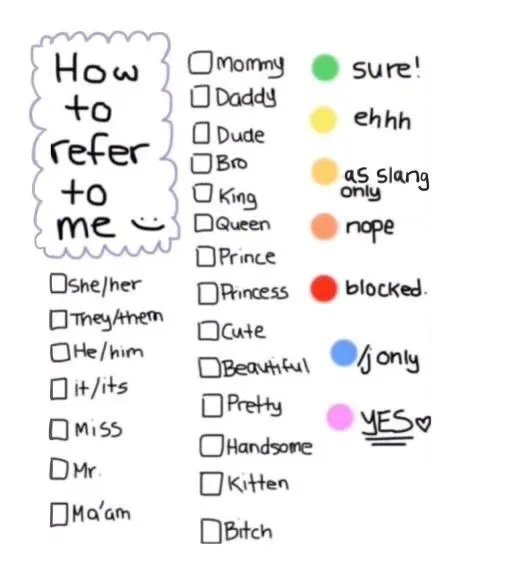 How
to
refer
to
me
She/her
They/them
He/him
it/its
Miss
Mr.
Ma'am
Mommy
Daddy
Dude
Bro
King
Queen
Prince
Princess
Cute
Beautiful
Pretty
Handsome
Kitten
Bitch
sure!
ehhh
as slang
only
nope
blocked.
/j only
YES♡